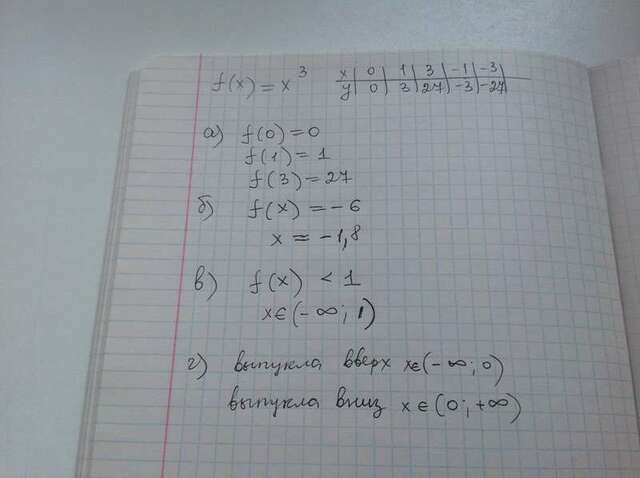 f(x) = x³
x | 0 | 1 | 3 | -1 | -3 |
y | 0 | 3 | 27 | -3 | -27 |
а) f(0) = 0
f(1) = 1
f(3) = 27
б) f(x) = -6
x = -1,8
в) f(x) < 1
x∈(-∞; 1)
г) выпукла вверх x∈(-∞; 0)
выпукла вниз x∈(0; +∞)